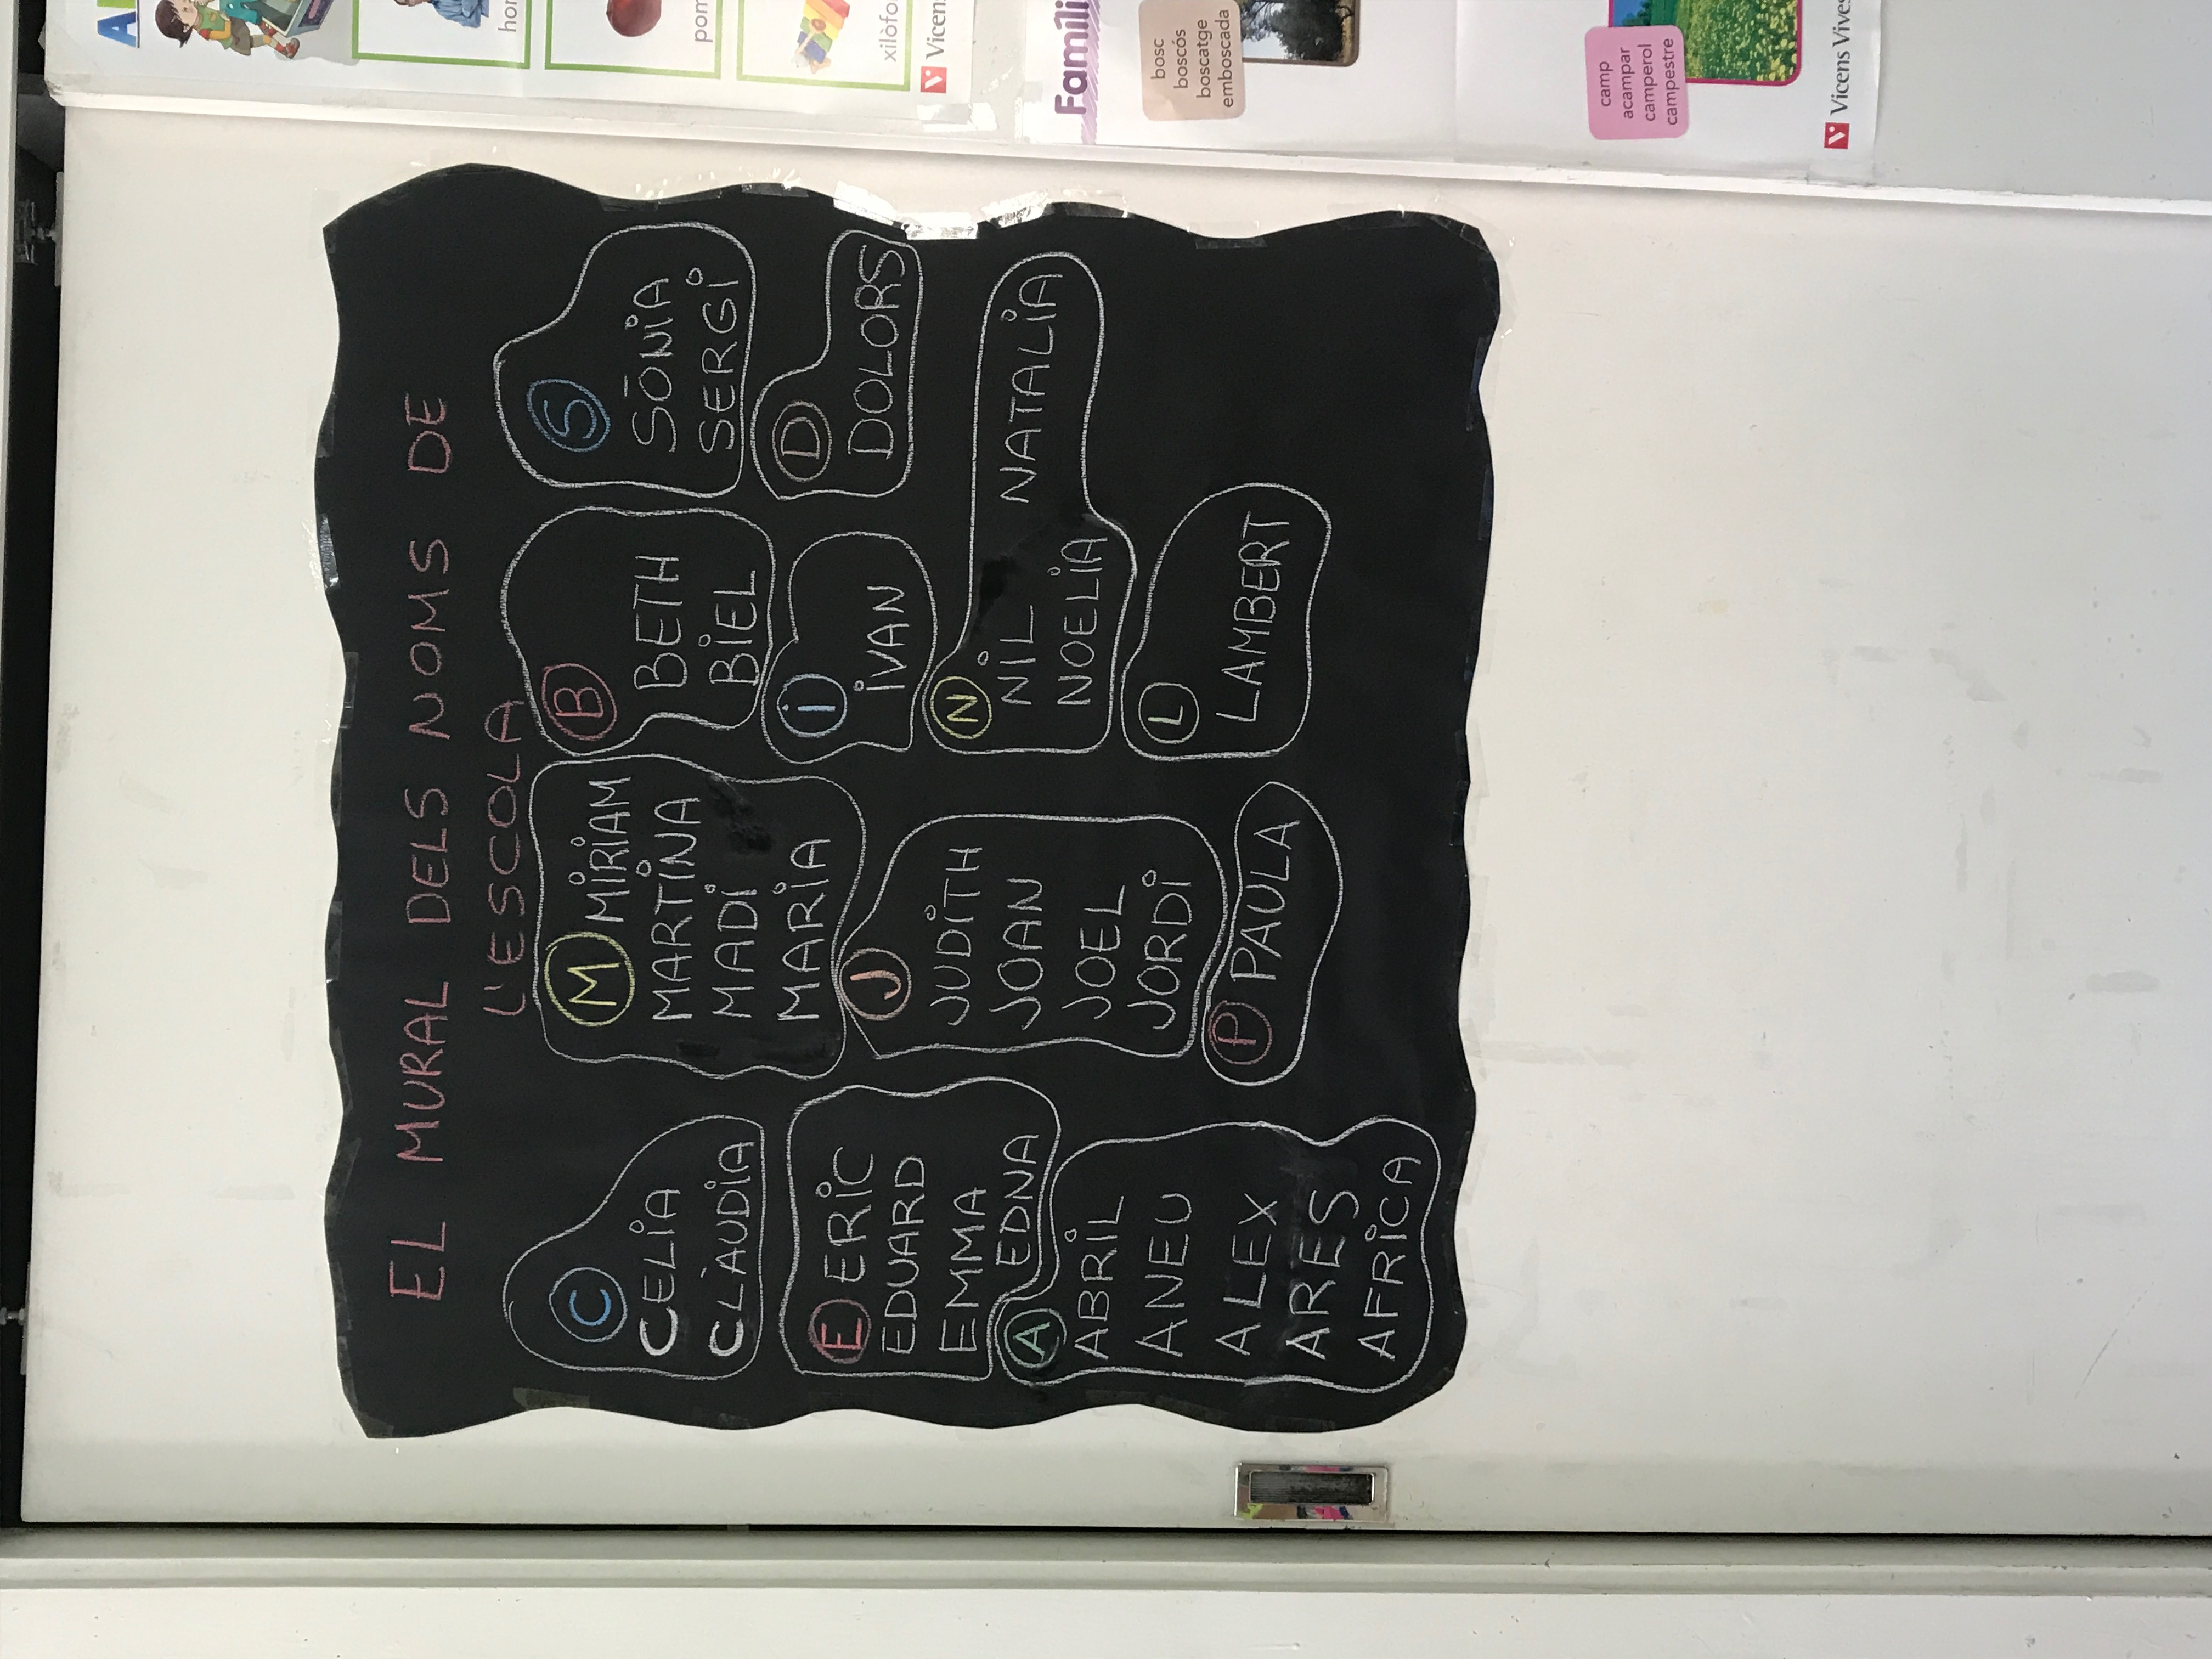 EL MURAL DELS NOMS DE
L'ESCOLA
C
CELIA
CLÀUDIA
E ERIC
EDUARD
EMMA
EDNA
A
ABRIL
ANEU
ALEX
ARES
AFRICA
M MIRIAM
MARTINA
MADI
MARIA
J
JUDITH
JOAN
JOEL
JORDI
P PAULA
B
BETH
BIEL
I
IVAN
N
NIL NATALIA
NOELIA
L
LAMBERT
S
SÒNIA
SERGI
D
DOLORS
xilòfo
Vicens
Famíli
bosc
boscós
boscatge
emboscada
camp
acampar
camperol
campestre
Vicens Vives